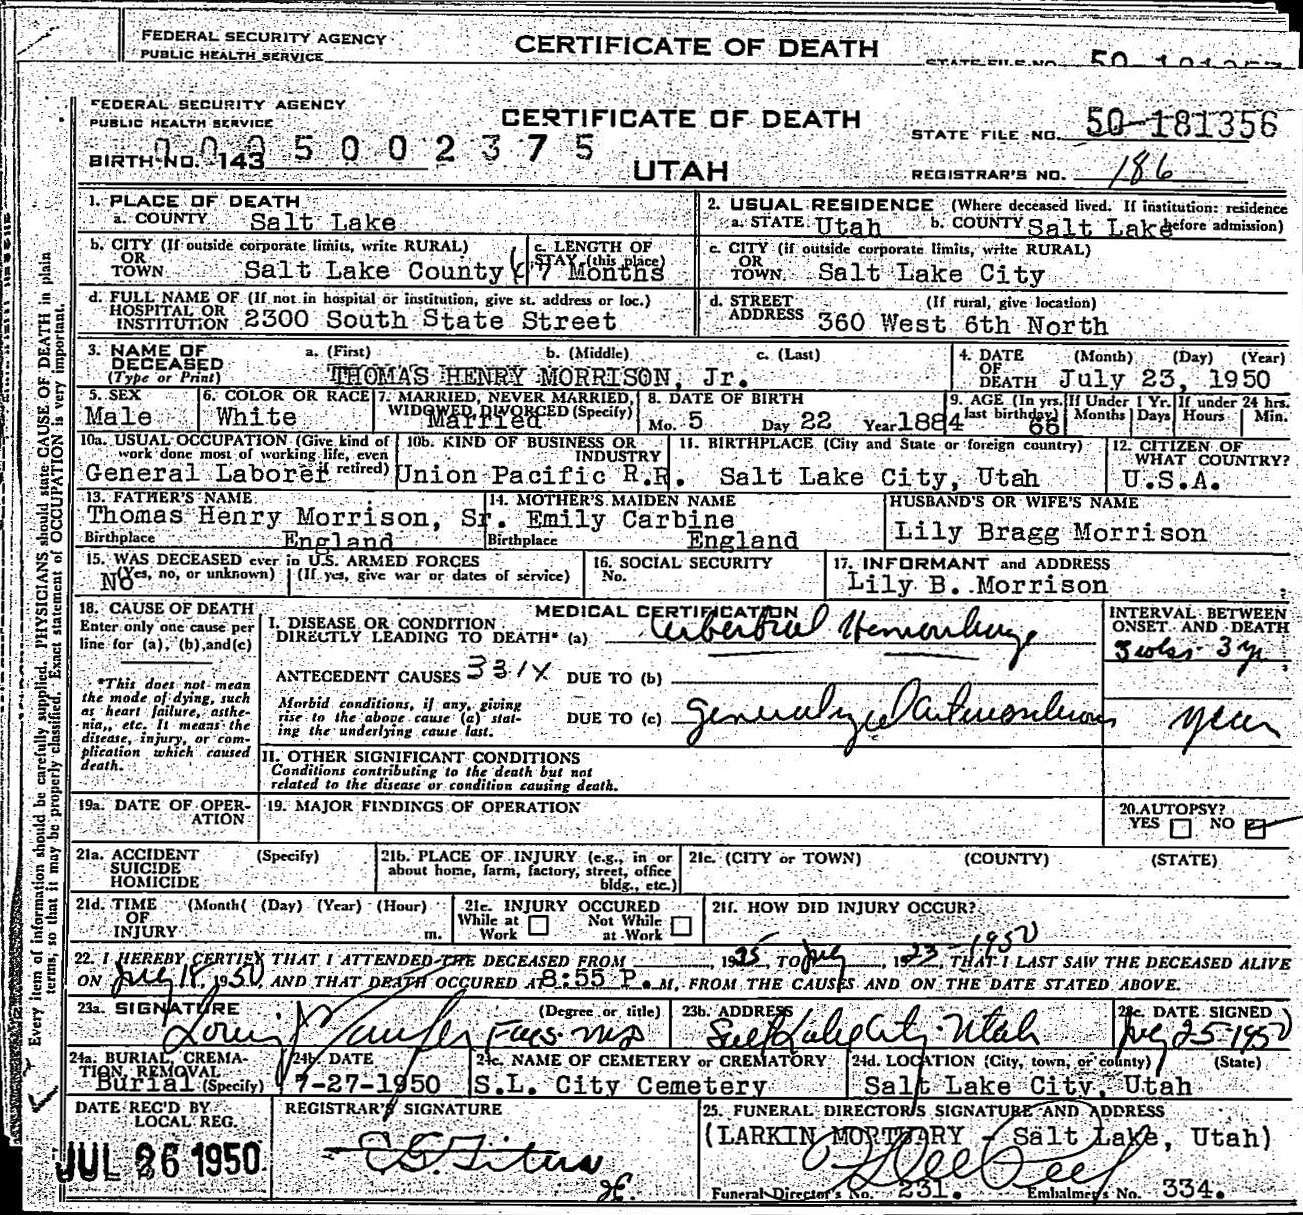 FEDERAL SECURITY AGENCY
PUBLIC HEALTH SERVICE
CERTIFICATE OF DEATH
STATE FILE NO. 50
FEDERAL SECURITY AGENCY
PUBLIC HEALTH SERVICE
CERTIFICATE OF DEATH
STATE FILE NO. 50-181356
0005002375
BIRTH NO. 143
UTAH
REGISTRAR'S NO. 186
1. PLACE OF DEATH
a. COUNTY Salt Lake
2. USUAL RESIDENCE (Where deceased lived. If institution: residence before admission)
a. STATE Utah b. COUNTY Salt Lake
b. CITY (If outside corporate limits, write RURAL)
OR TOWN Salt Lake County
c. LENGTH OF STAY (this place)
7 Months
c. CITY (if outside corporate limits, write RURAL)
OR TOWN. Salt Lake City
d. FULL NAME OF (If not in hospital or institution, give st. address or loc.)
HOSPITAL OR INSTITUTION 2300 South State Street
d. STREET ADDRESS (If rural, give location)
360 West 6th North
3. NAME OF DECEASED (Type or Print)
a. (First) b. (Middle) c. (Last)
THOMAS HENRY MORRISON, Jr.
4. DATE OF DEATH (Month) (Day) (Year)
July 23, 1950
5. SEX
Male
6. COLOR OR RACE
White
7. MARRIED, NEVER MARRIED, WIDOWED, DIVORCED (Specify)
Married
8. DATE OF BIRTH
Mo. 5 Day 22 Year 1884
9. AGE (In yrs. last birthday) 66
If Under 1 Yr. Months Days
If under 24 hrs. Hours Min.
10a. USUAL OCCUPATION (Give kind of work done most of working life, even if retired)
General Laborer
10b. KIND OF BUSINESS OR INDUSTRY
Union Pacific R.R.
11. BIRTHPLACE (City and State or foreign country)
Salt Lake City, Utah
12. CITIZEN OF WHAT COUNTRY?
U.S.A.
13. FATHER'S NAME
Thomas Henry Morrison, Sr.
Birthplace England
14. MOTHER'S MAIDEN NAME
Emily Carbine
Birthplace England
HUSBAND'S OR WIFE'S NAME
Lily Bragg Morrison
15. WAS DECEASED ever in U.S. ARMED FORCES
No (Yes, no, or unknown) (If yes, give war or dates of service)
16. SOCIAL SECURITY No.
17. INFORMANT and ADDRESS
Lily B. Morrison
18. CAUSE OF DEATH
Enter only one cause per line for (a), (b), and (c)
*This does not mean the mode of dying, such as heart failure, asthenia, etc. It means the disease, injury, or complication which caused death.
MEDICAL CERTIFICATION
I. DISEASE OR CONDITION
DIRECTLY LEADING TO DEATH* (a) Cerebral Hemorrhage
INTERVAL BETWEEN ONSET AND DEATH
3 wks - 3 yr
ANTECEDENT CAUSES 331X DUE TO (b)
Morbid conditions, if any, giving rise to the above cause (a) stating the underlying cause last.
DUE TO (c) generalized
years
II. OTHER SIGNIFICANT CONDITIONS
Conditions contributing to the death but not
related to the disease or condition causing death.
19a. DATE OF OPERATION
19. MAJOR FINDINGS OF OPERATION
20. AUTOPSY?
YES NO
21a. ACCIDENT SUICIDE HOMICIDE (Specify)
21b. PLACE OF INJURY (e.g., in or about home, farm, factory, street, office bldg., etc.)
21c. (CITY or TOWN) (COUNTY) (STATE)
21d. TIME OF INJURY (Month( (Day) (Year) (Hour) m.
21e. INJURY OCCURED
While at Work Not While at Work
21f. HOW DID INJURY OCCUR?
22. I HEREBY CERTIFY THAT I ATTENDED THE DECEASED FROM 1935, TO July 23-1950, THAT I LAST SAW THE DECEASED ALIVE
ON July 18, 1950, AND THAT DEATH OCCURED AT 8:55 P. M, FROM THE CAUSES AND ON THE DATE STATED ABOVE.
23a. SIGNATURE (Degree or title)
MD
23b. ADDRESS
Salt Lake City - Utah
23c. DATE SIGNED
July 25-1950
24a. BURIAL, CREMATION, REMOVAL (Specify)
Burial
24b. DATE
7-27-1950
24c. NAME OF CEMETERY or CREMATORY
S.L. City Cemetery
24d. LOCATION (City, town, or county) (State)
Salt Lake City, Utah
DATE REC'D BY LOCAL REG.
JUL 26 1950
REGISTRAR'S SIGNATURE
25. FUNERAL DIRECTOR'S SIGNATURE AND ADDRESS
(LARKIN MORTUARY - Salt Lake, Utah)
Funeral Director's No. 231. Embalmer's No. 334.
Every item of information should be carefully supplied. PHYSICIANS should state CAUSE OF DEATH in plain
terms, so that it may be properly classified. Exact statement of OCCUPATION is very important.